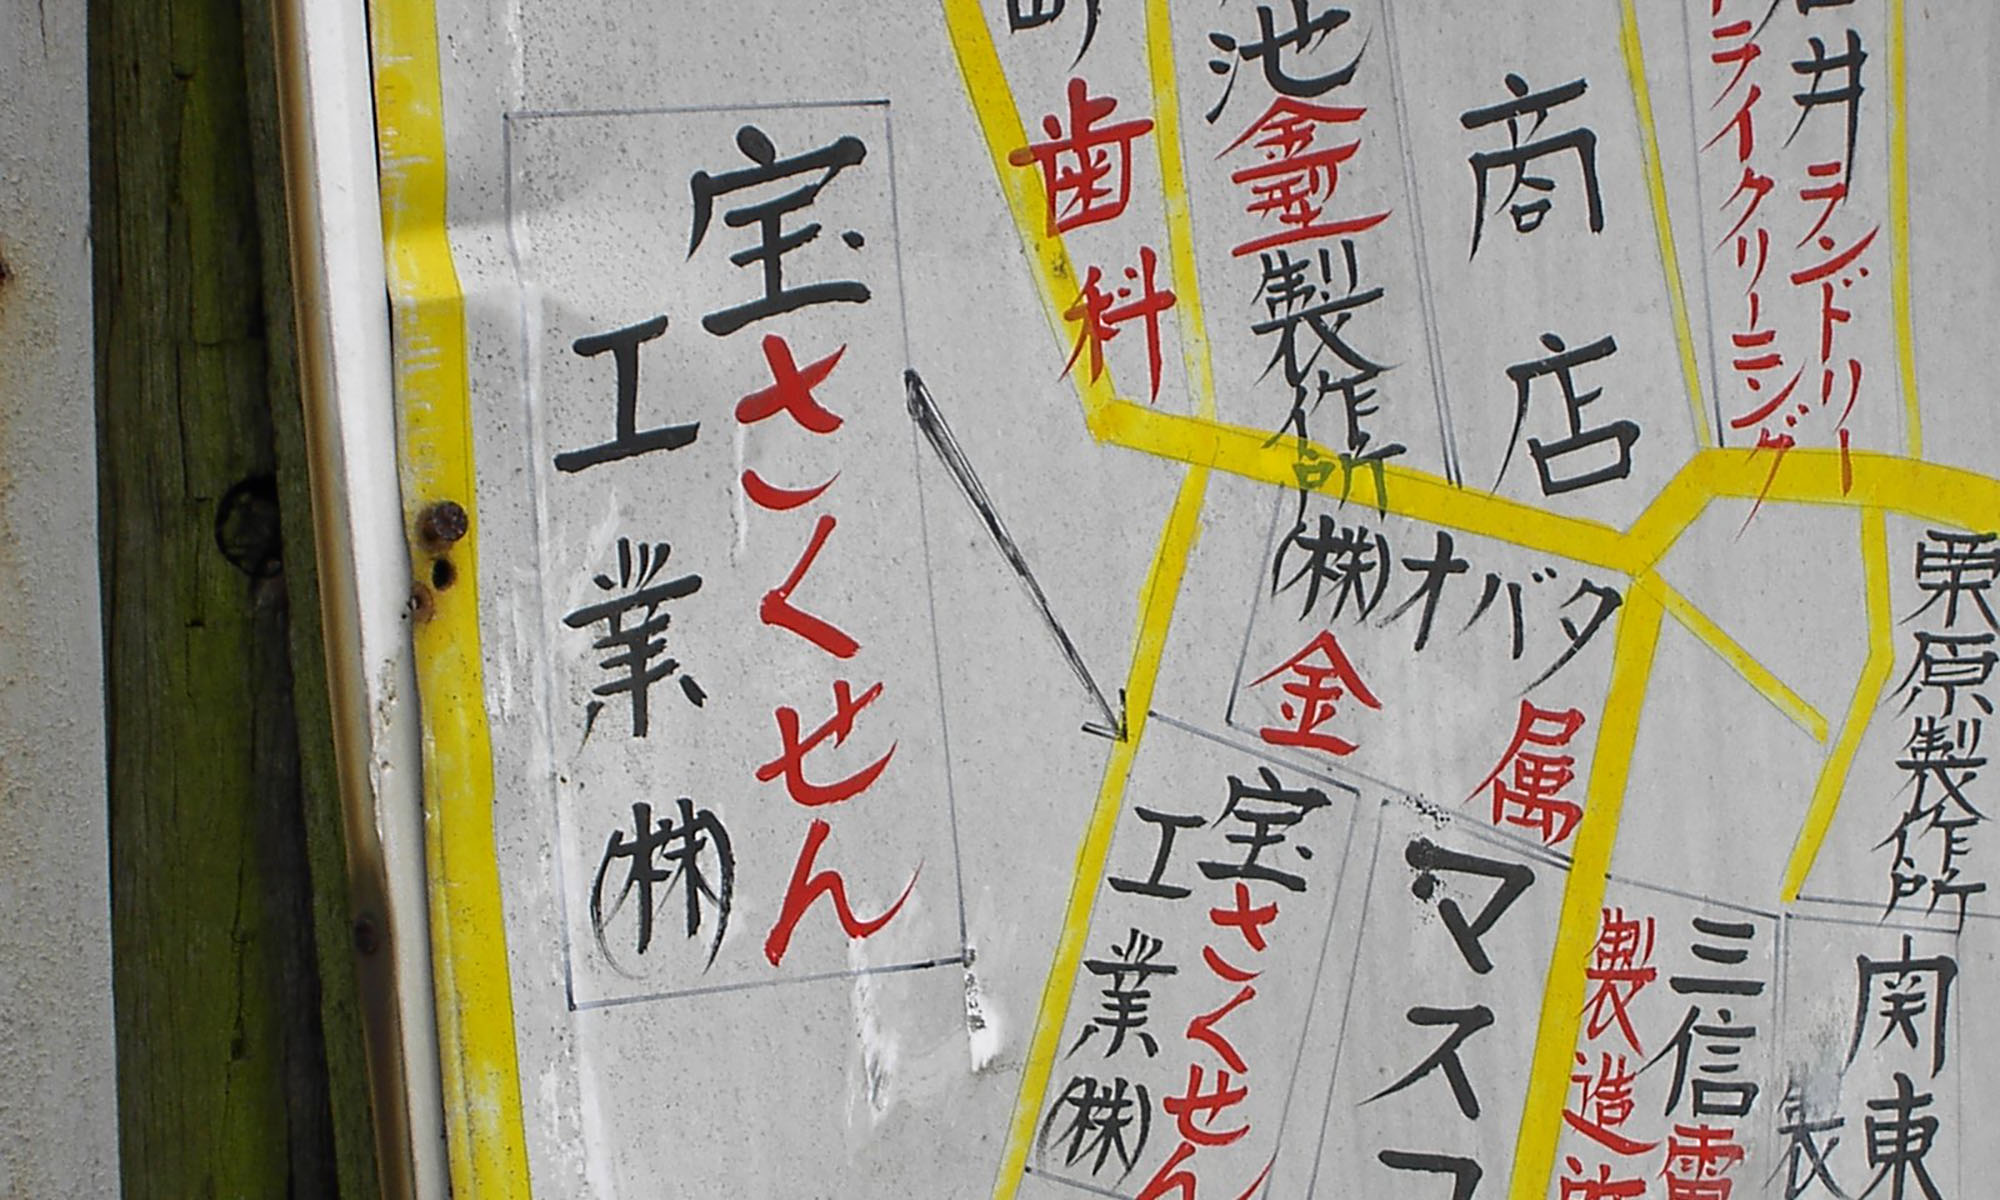 宝さくせん
工業(株)
歯科
池金型製作所(株)
商店
井ランドリー
ライクリーニング
オバタ
金属
栗原製作所
宝さくせん
工業(株)
マス
三信電
製造
関東
製